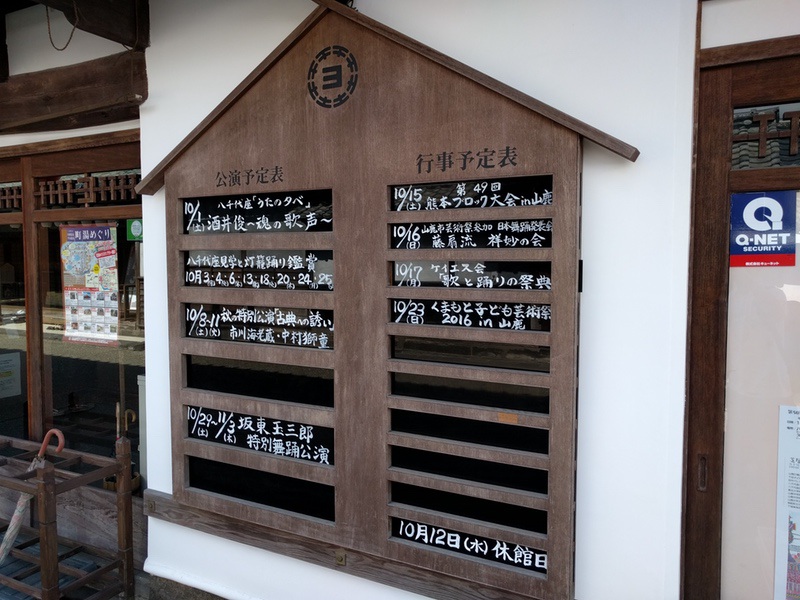 ヨ
公演予定表
八千代座「うたの夕べ」
10/1(土)酒井俊~魂の歌声~
八千代座見学と灯籠踊り鑑賞
10月3・4・6・13・18・20・24・25
10/8~11(土)(火)秋の特別公演「古典への誘い」
市川海老蔵・中村獅童
10/29~11/3(土)(木)坂東玉三郎
特別舞踊公演
行事予定表
10/15(土)第49回
熊本ブロック大会in山鹿
10/16(日)山鹿市芸術祭参加 日本舞踊発表会
藤扇流 祥妙の会
10/17(月)ケイエス会
「歌と踊りの祭典
10/23(日)くまもと子ども芸術祭
2016 in 山鹿
10月12日(水)休館日
町湯めぐり
Q-NET
SECURITY